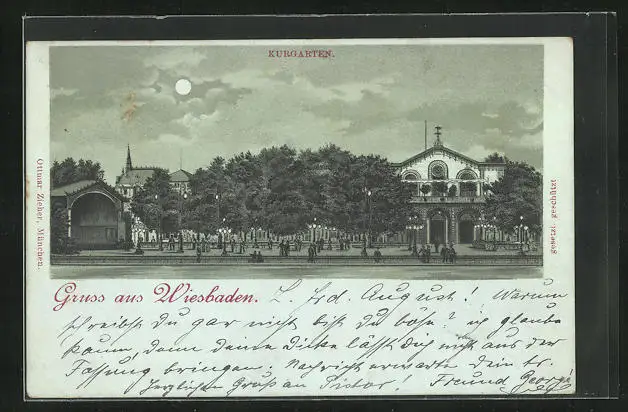 KURGARTEN.
Ottmar Zieher, München.
gesetzl. geschützt
Gruss aus Wiesbaden. L. Frd. August! Warum
schreibst Du gar nicht bist Du böse? ich glaube
kaum, denn deine Dicke lässt Dich nicht aus der
Fassung bringen. Nachricht erwarte dein tr.
Herzlichen Gruß an Freund George